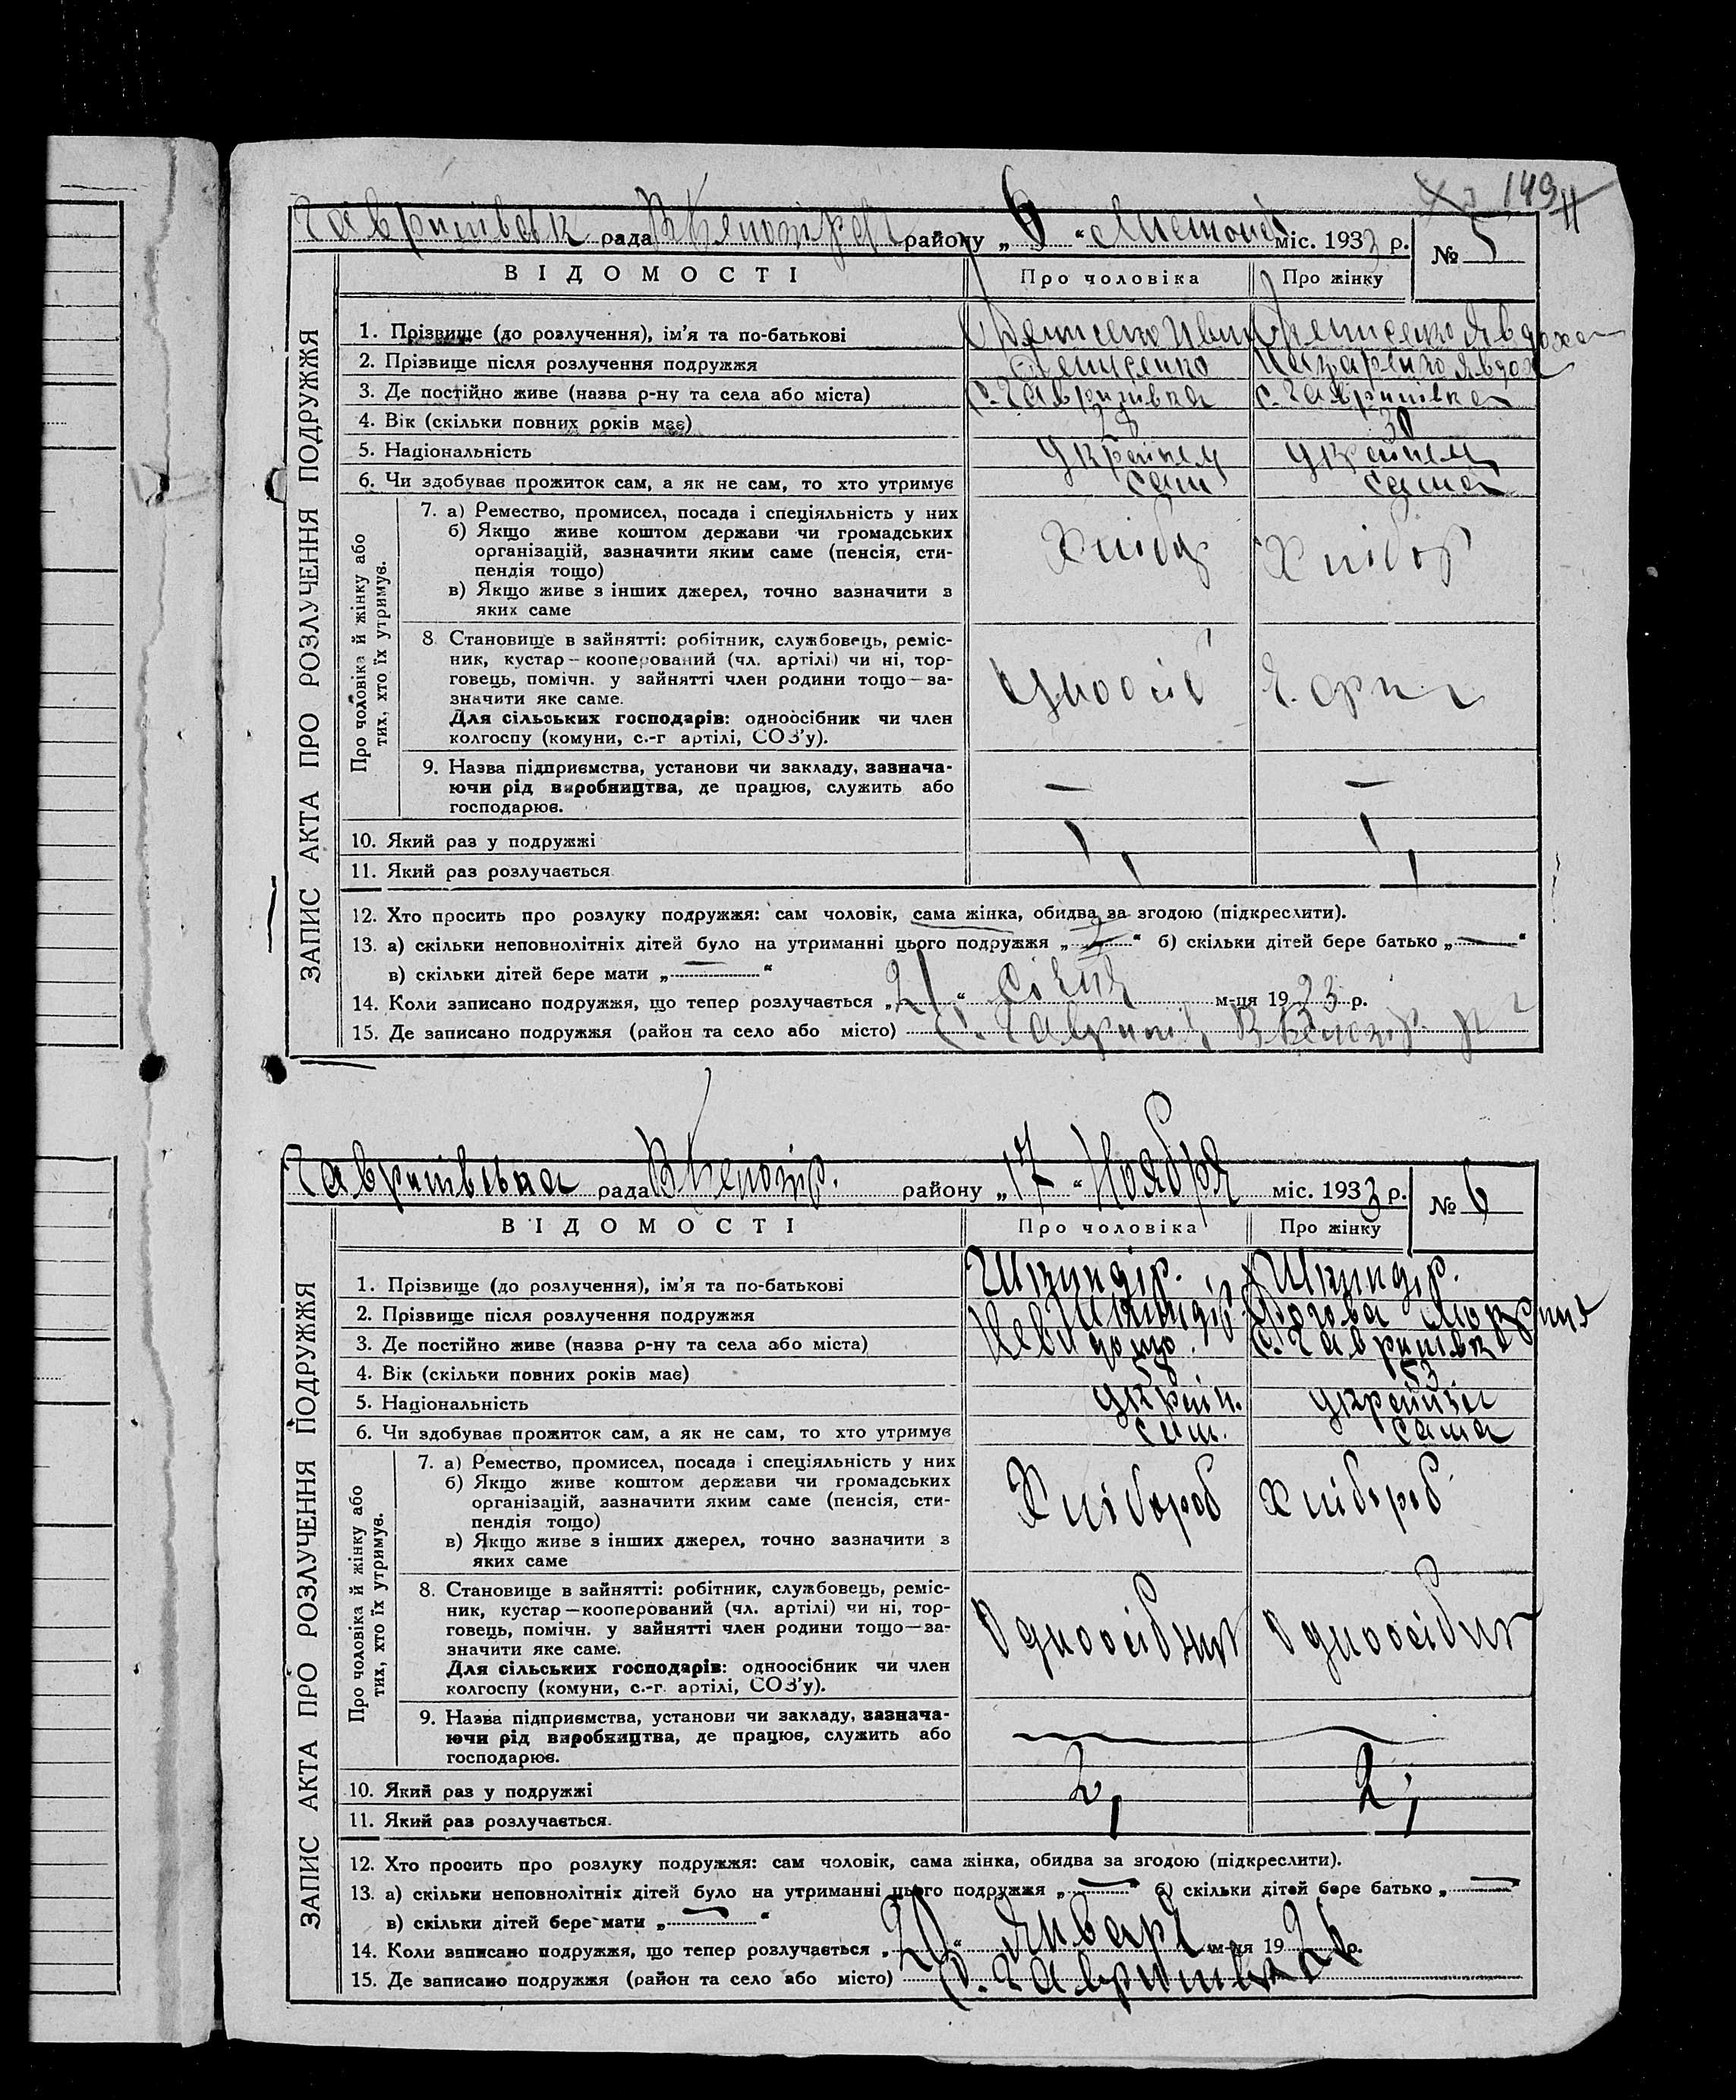 149
Гаврилівськ рада району „6“ міс. 1933 р. № 5
ВІДОМОСТІ Про чоловіка Про жінку
ЗАПИС АКТА ПРО РОЗЛУЧЕННЯ ПОДРУЖЖЯ
1. Прізвище (до розлучення), ім'я та по-батькові Денисенко Іван Денисенко Явдоха
2. Прізвище після розлучення подружжя Денисенко Назаренко Явдох
3. Де постійно живе (назва р-ну та села або міста) с. Гаврилівка с. Гаврилівка
4. Вік (скільки повних років має) 28 30
5. Національність Українец Українец
6. Чи здобував прожиток сам, а як не сам, то хто утримує сам сама
Про чоловіка й жінку або тих, хто їх утримує.
7. а) Ремество, промисел, посада і спеціяльність у них
б) Якщо живе коштом держави чи громадських
організацій, зазначити яким саме (пенсія, сти-
пендія тощо)
в) Якщо живе з інших джерел, точно зазначити з
яких саме
8. Становище в зайнятті: робітник, службовець, реміс-
ник, кустар—кооперований (чл. артілі) чи ні, тор-
говець, помічн. у зайнятті член родини тощо—за-
значити яке саме.
Для сільських господарів: одноосібник чи член
колгоспу (комуни, с.-г. артілі, СОЗ'у).
9. Назва підприємства, установи чи закладу, зазнача- — —
ючи рід виробництва, де працює, служить або
господарює.
10. Який раз у подружжі 1 1
11. Який раз розлучається 1 1
12. Хто просить про розлуку подружжя: сам чоловік, сама жінка, обидва за згодою (підкреслити).
13. а) скільки неповнолітніх дітей було на утриманні цього подружжя „2“ б) скільки дітей бере батько „—“
в) скільки дітей бере мати „—“
14. Коли записано подружжя, що тепер розлучається „21“ січня м-ця 1923 р.
15. Де записано подружжя (район та село або місто) с. Гаврилів
Гаврилівська рада району „17“ Ноября міс. 1933 р. № 6
ВІДОМОСТІ Про чоловіка Про жінку
ЗАПИС АКТА ПРО РОЗЛУЧЕННЯ ПОДРУЖЖЯ
1. Прізвище (до розлучення), ім'я та по-батькові Шкиндір. Шкиндір.
2. Прізвище після розлучення подружжя Шкиндір
3. Де постійно живе (назва р-ну та села або міста) Невидомо. с. Гаврилівка
4. Вік (скільки повних років має) 58 53
5. Національність Україн.
6. Чи здобував прожиток сам, а як не сам, то хто утримує сам. сама
Про чоловіка й жінку або тих, хто їх утримує.
7. а) Ремество, промисел, посада і спеціяльність у них Хлібороб Хлібороб
б) Якщо живе коштом держави чи громадських
організацій, зазначити яким саме (пенсія, сти-
пендія тощо)
в) Якщо живе з інших джерел, точно зазначити з
яких саме
8. Становище в зайнятті: робітник, службовець, реміс- Одноосібник Одноосібник
ник, кустар—кооперований (чл. артілі) чи ні, тор-
говець, помічн. у зайнятті член родини тощо—за-
значити яке саме.
Для сільських господарів: одноосібник чи член
колгоспу (комуни, с.-г. артілі, СОЗ'у).
9. Назва підприємства, установи чи закладу, зазнача- — —
ючи рід виробництва, де працює, служить або
господарює.
10. Який раз у подружжі 2 2
11. Який раз розлучається. 1 1
12. Хто просить про розлуку подружжя: сам чоловік, сама жінка, обидва за згодою (підкреслити).
13. а) скільки неповнолітніх дітей було на утриманні цього подружжя „—“ б) скільки дітей бере батько „—“
в) скільки дітей бере мати „—“
14. Коли записано подружжя, що тепер розлучається „20“ Января м-ця 1926 р.
15. Де записано подружжя (район та село або місто) с. Гаврилівка